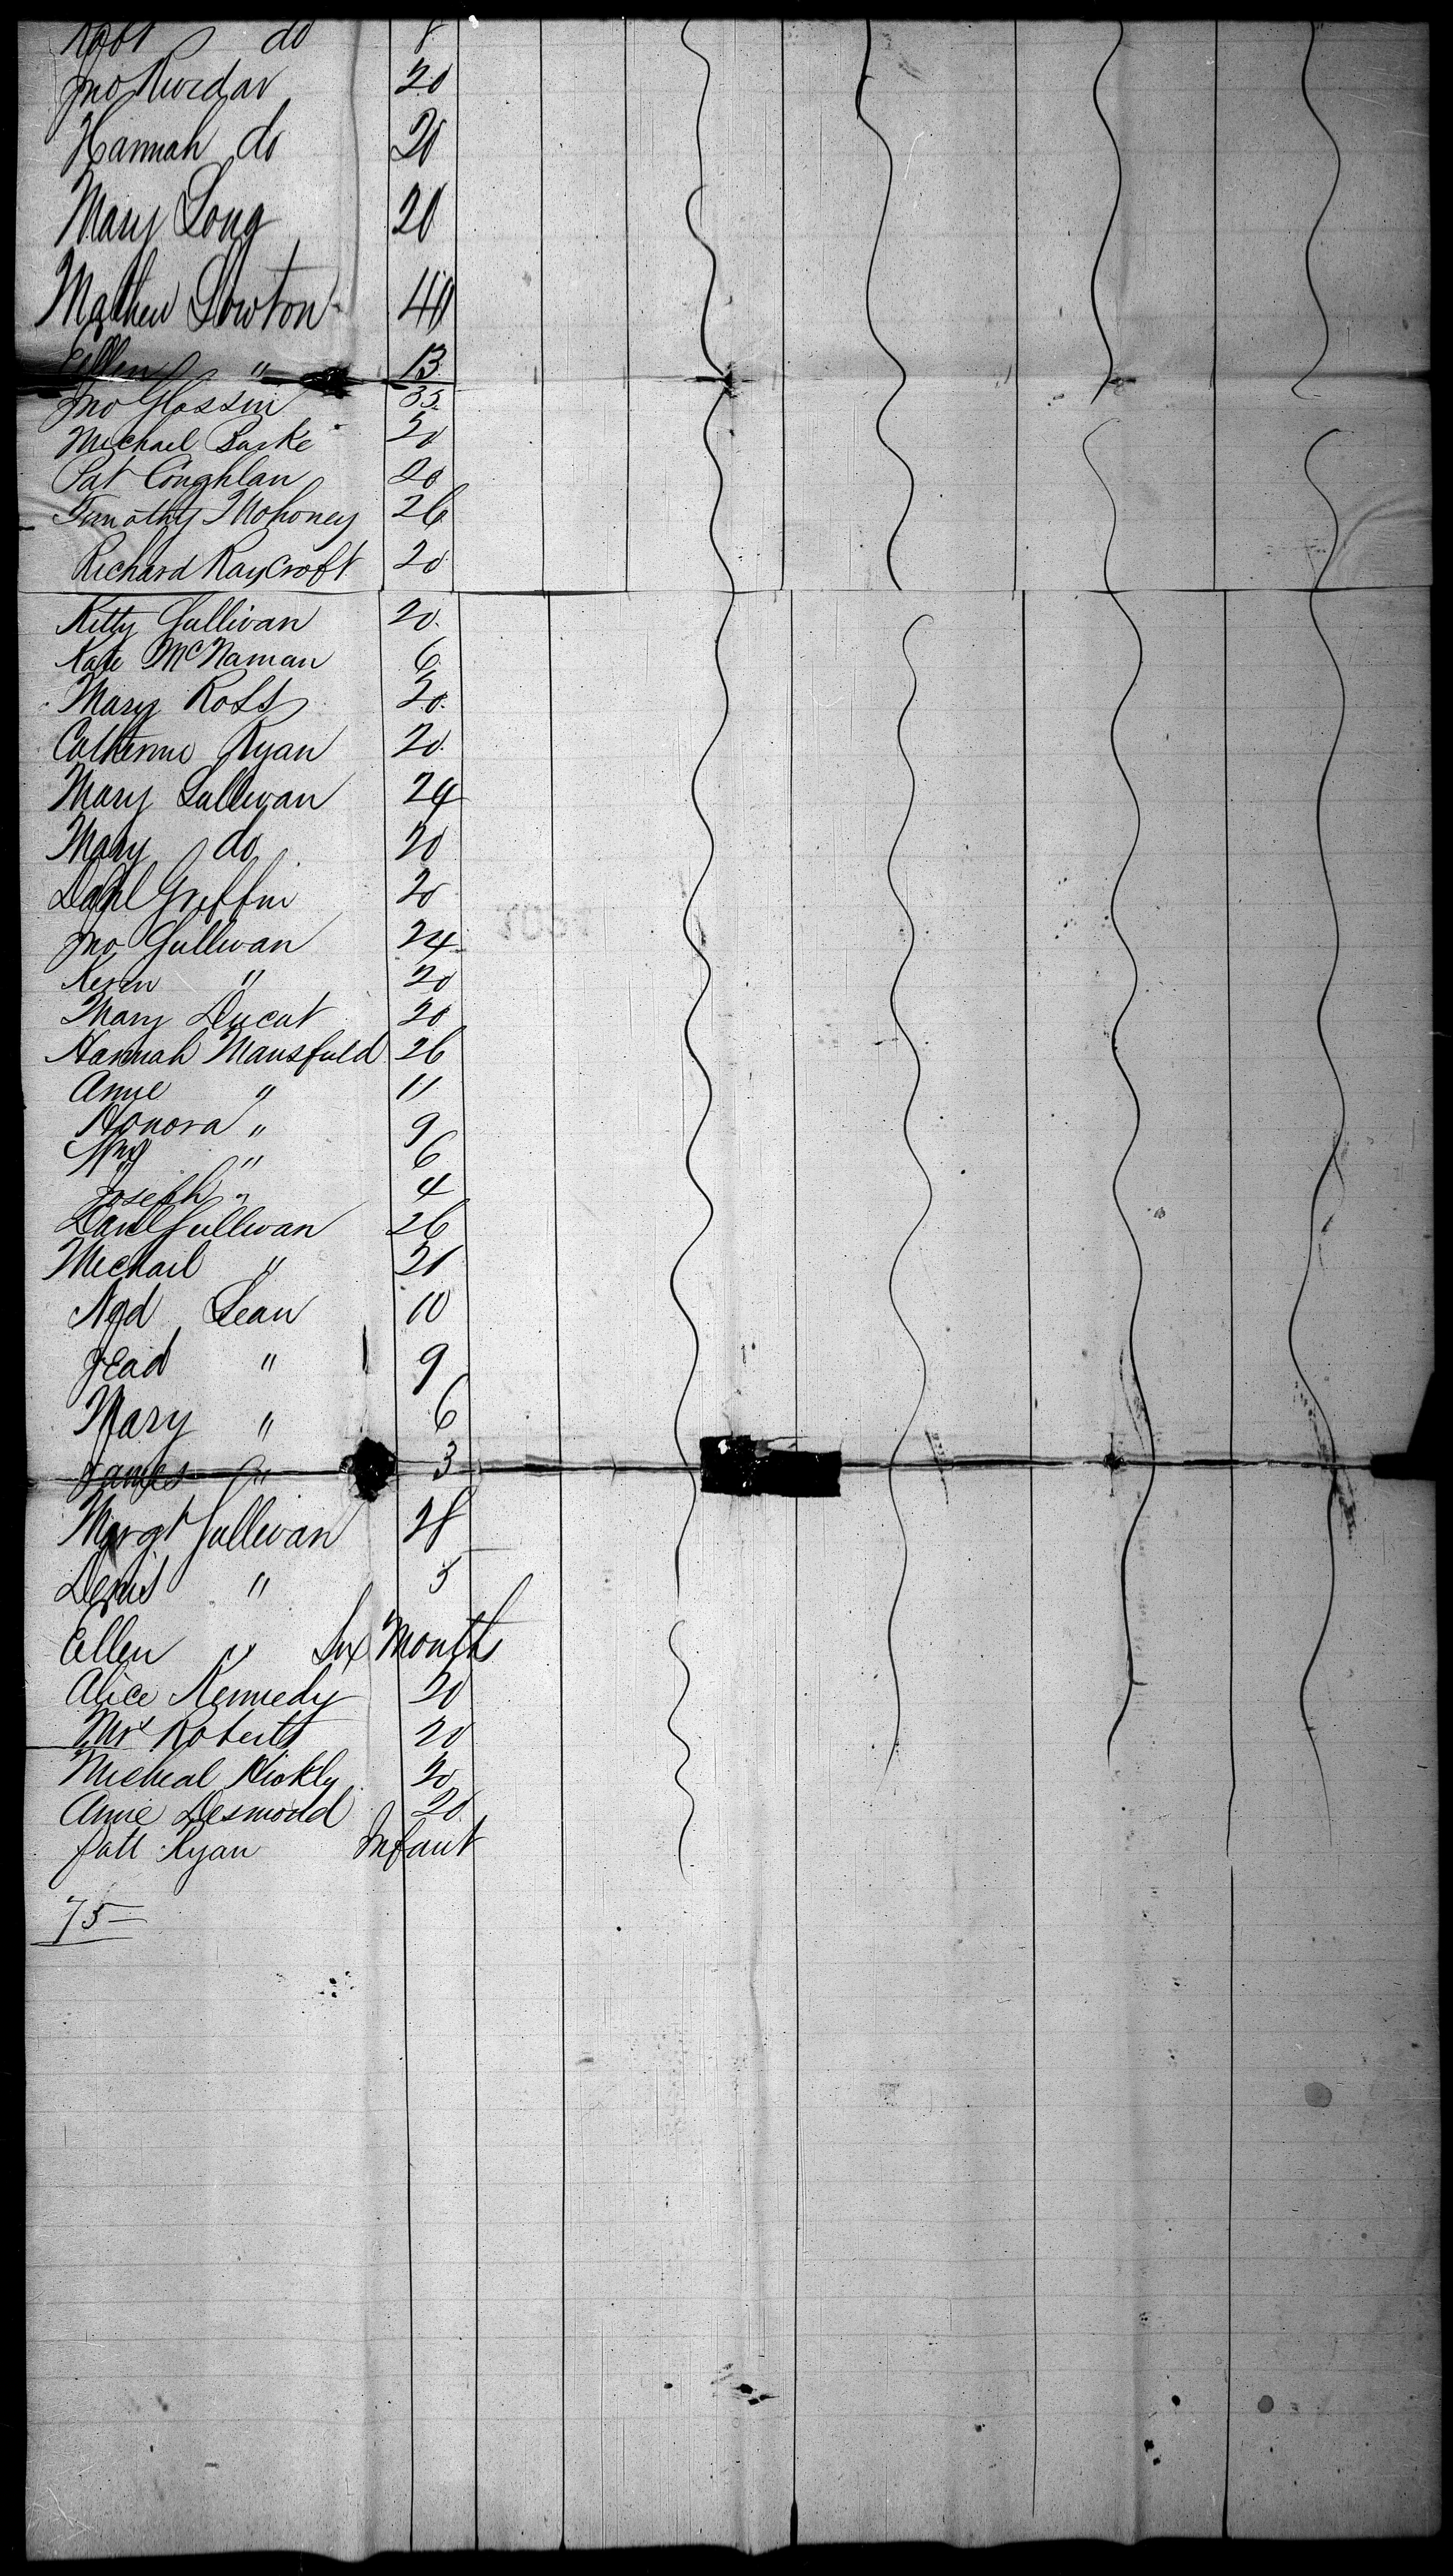 Robt do 8
Jno Riordan 20
Hannah do 20
Mary Long 20
Mathew Lowton 40
Ellen " 13
Jno Glassin 35
Michael Burke 20
Pat Coughlan 20
Timothy Mohoney 26
Richard Raycroft 20
Kitty Sullivan 20
Kate McNaman 6
Mary Ross 20
Catherine Ryan 20
Mary Sullivan 24
Mary do 20
Danl Griffin 20
Jno Sullivan 24
" 20
Mary Ducat 20
Hannah Mansfield 26
Anne " 11
Honora " 9
" 6
Joseph " 4
Danl Sullivan 26
Michail " 21
Ned Lean 10
" 9
Mary " 6
James " 3
Margt Sullivan 28
Denis " 5
Ellen " Six Months
Alice Kennedy 20
Mrs Roberts 20
Micheal Hickly 20
Annie Desmond 20
Patt Ryan Infant
75